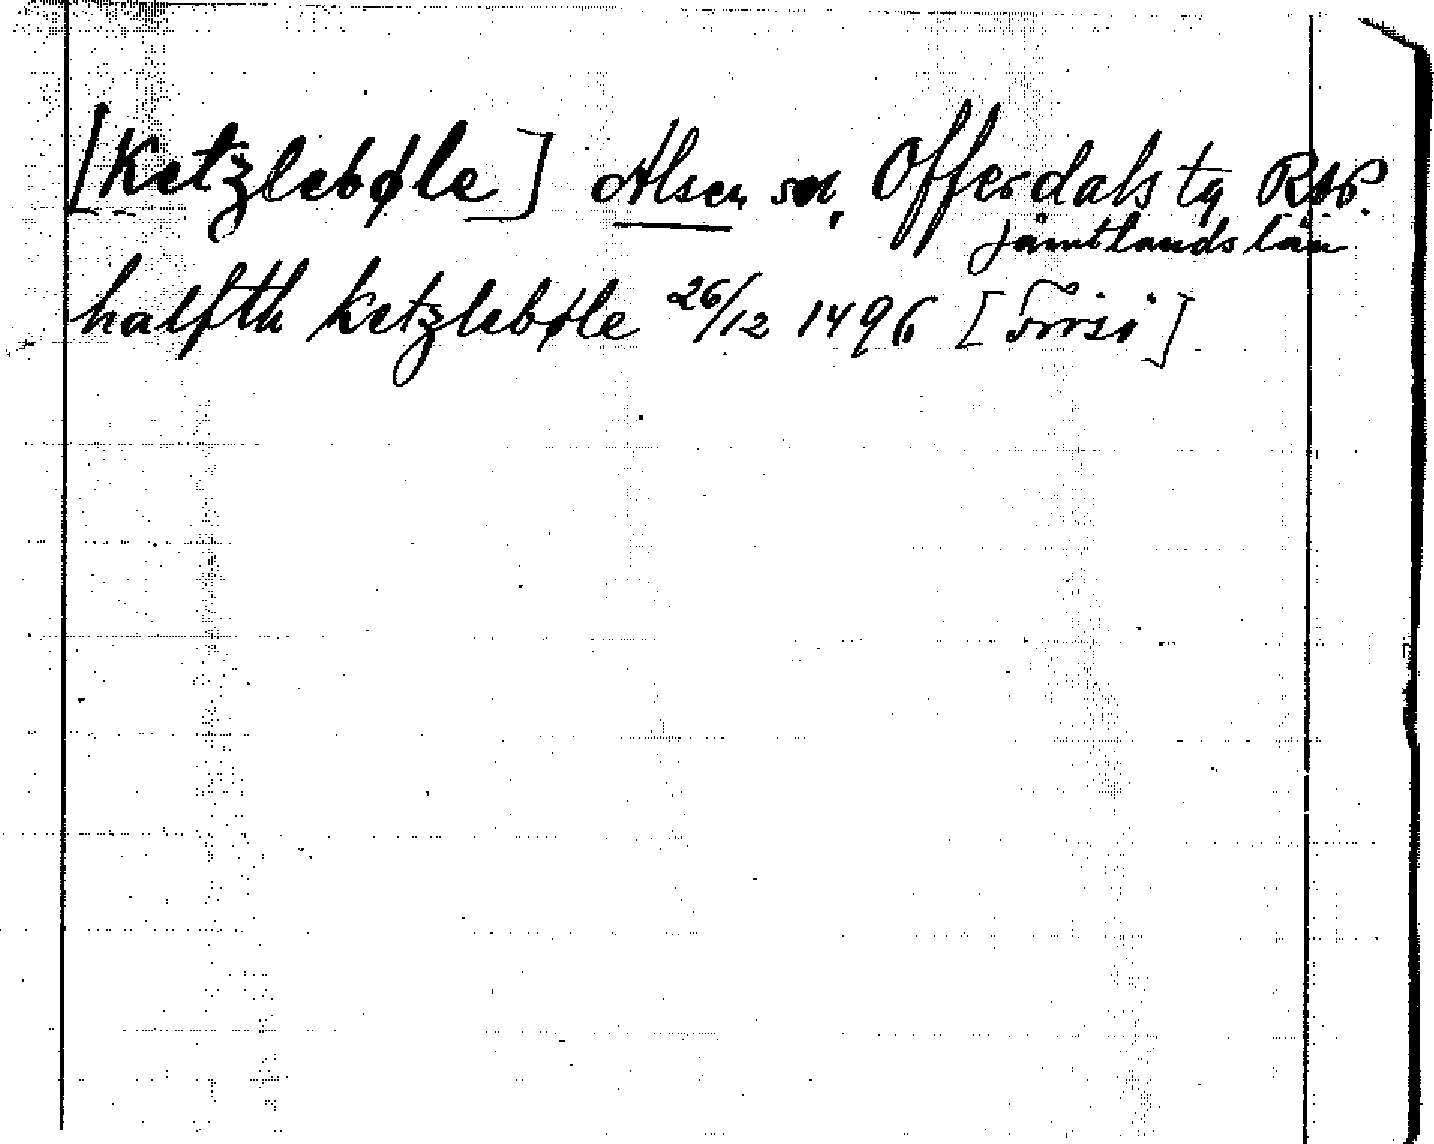 [Ketzlebøle] Alsen sn, Offerdals tg RAP.
Jämtlands län
halfth Ketzlebøle 26/12 1496 [Frösö]